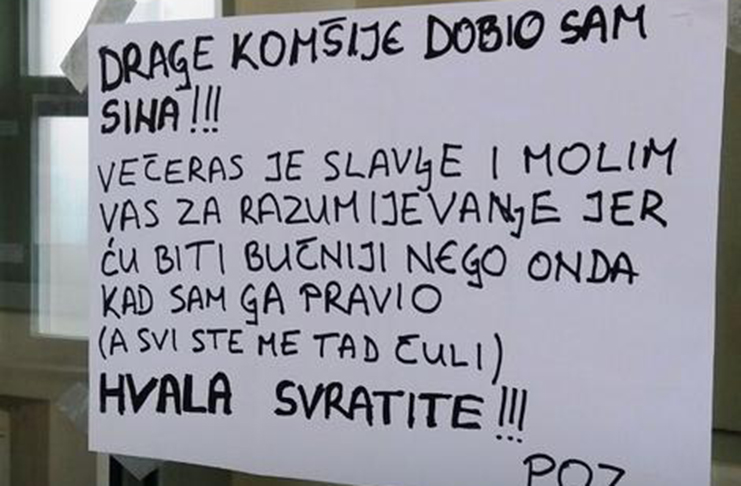 DRAGE KOMŠIJE DOBIO SAM
SINA!!!
VEČERAS JE SLAVLJE I MOLIM
VAS ZA RAZUMIJEVANJE JER
ĆU BITI BUČNIJI NEGO ONDA
KAD SAM GA PRAVIO
(A SVI STE ME TAD ČULI)
HVALA SVRATITE!!!
POZ